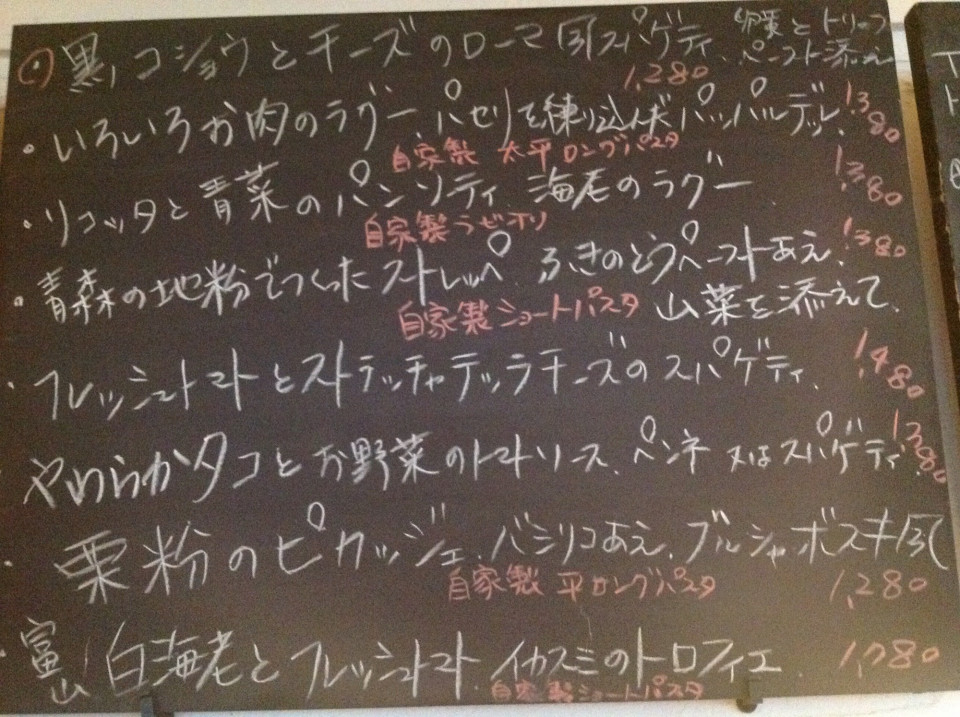 黒コショウとチーズのローマ風スパゲティ 卵黄とトリュフ
ペースト添え
1,280
・いろいろお肉のラグー、パセリを練り込んだパッパルデッレ 1,380
自家製 太平ロングパスタ
・リコッタと青菜のパンソティ 海老のラグー 1,380
自家製ラビオリ
・青森の地粉でつくったストレッペ ふきのとうペーストあえ、1,380
自家製ショートパスタ 山菜を添えて、
・フレッシュトマトとストラッチャテッラチーズのスパゲティ、1,480
やわらかタコとお野菜のトマトソース、ペンネ又はスパゲティ 1,380
・栗粉のピカッジェ、バジリコあえ、ブルシャボスキ風
自家製 平ロングパスタ 1,280
・富山白海老とフレッシュトマト イカスミのトロフィエ 1,780
自家製ショートパスタ